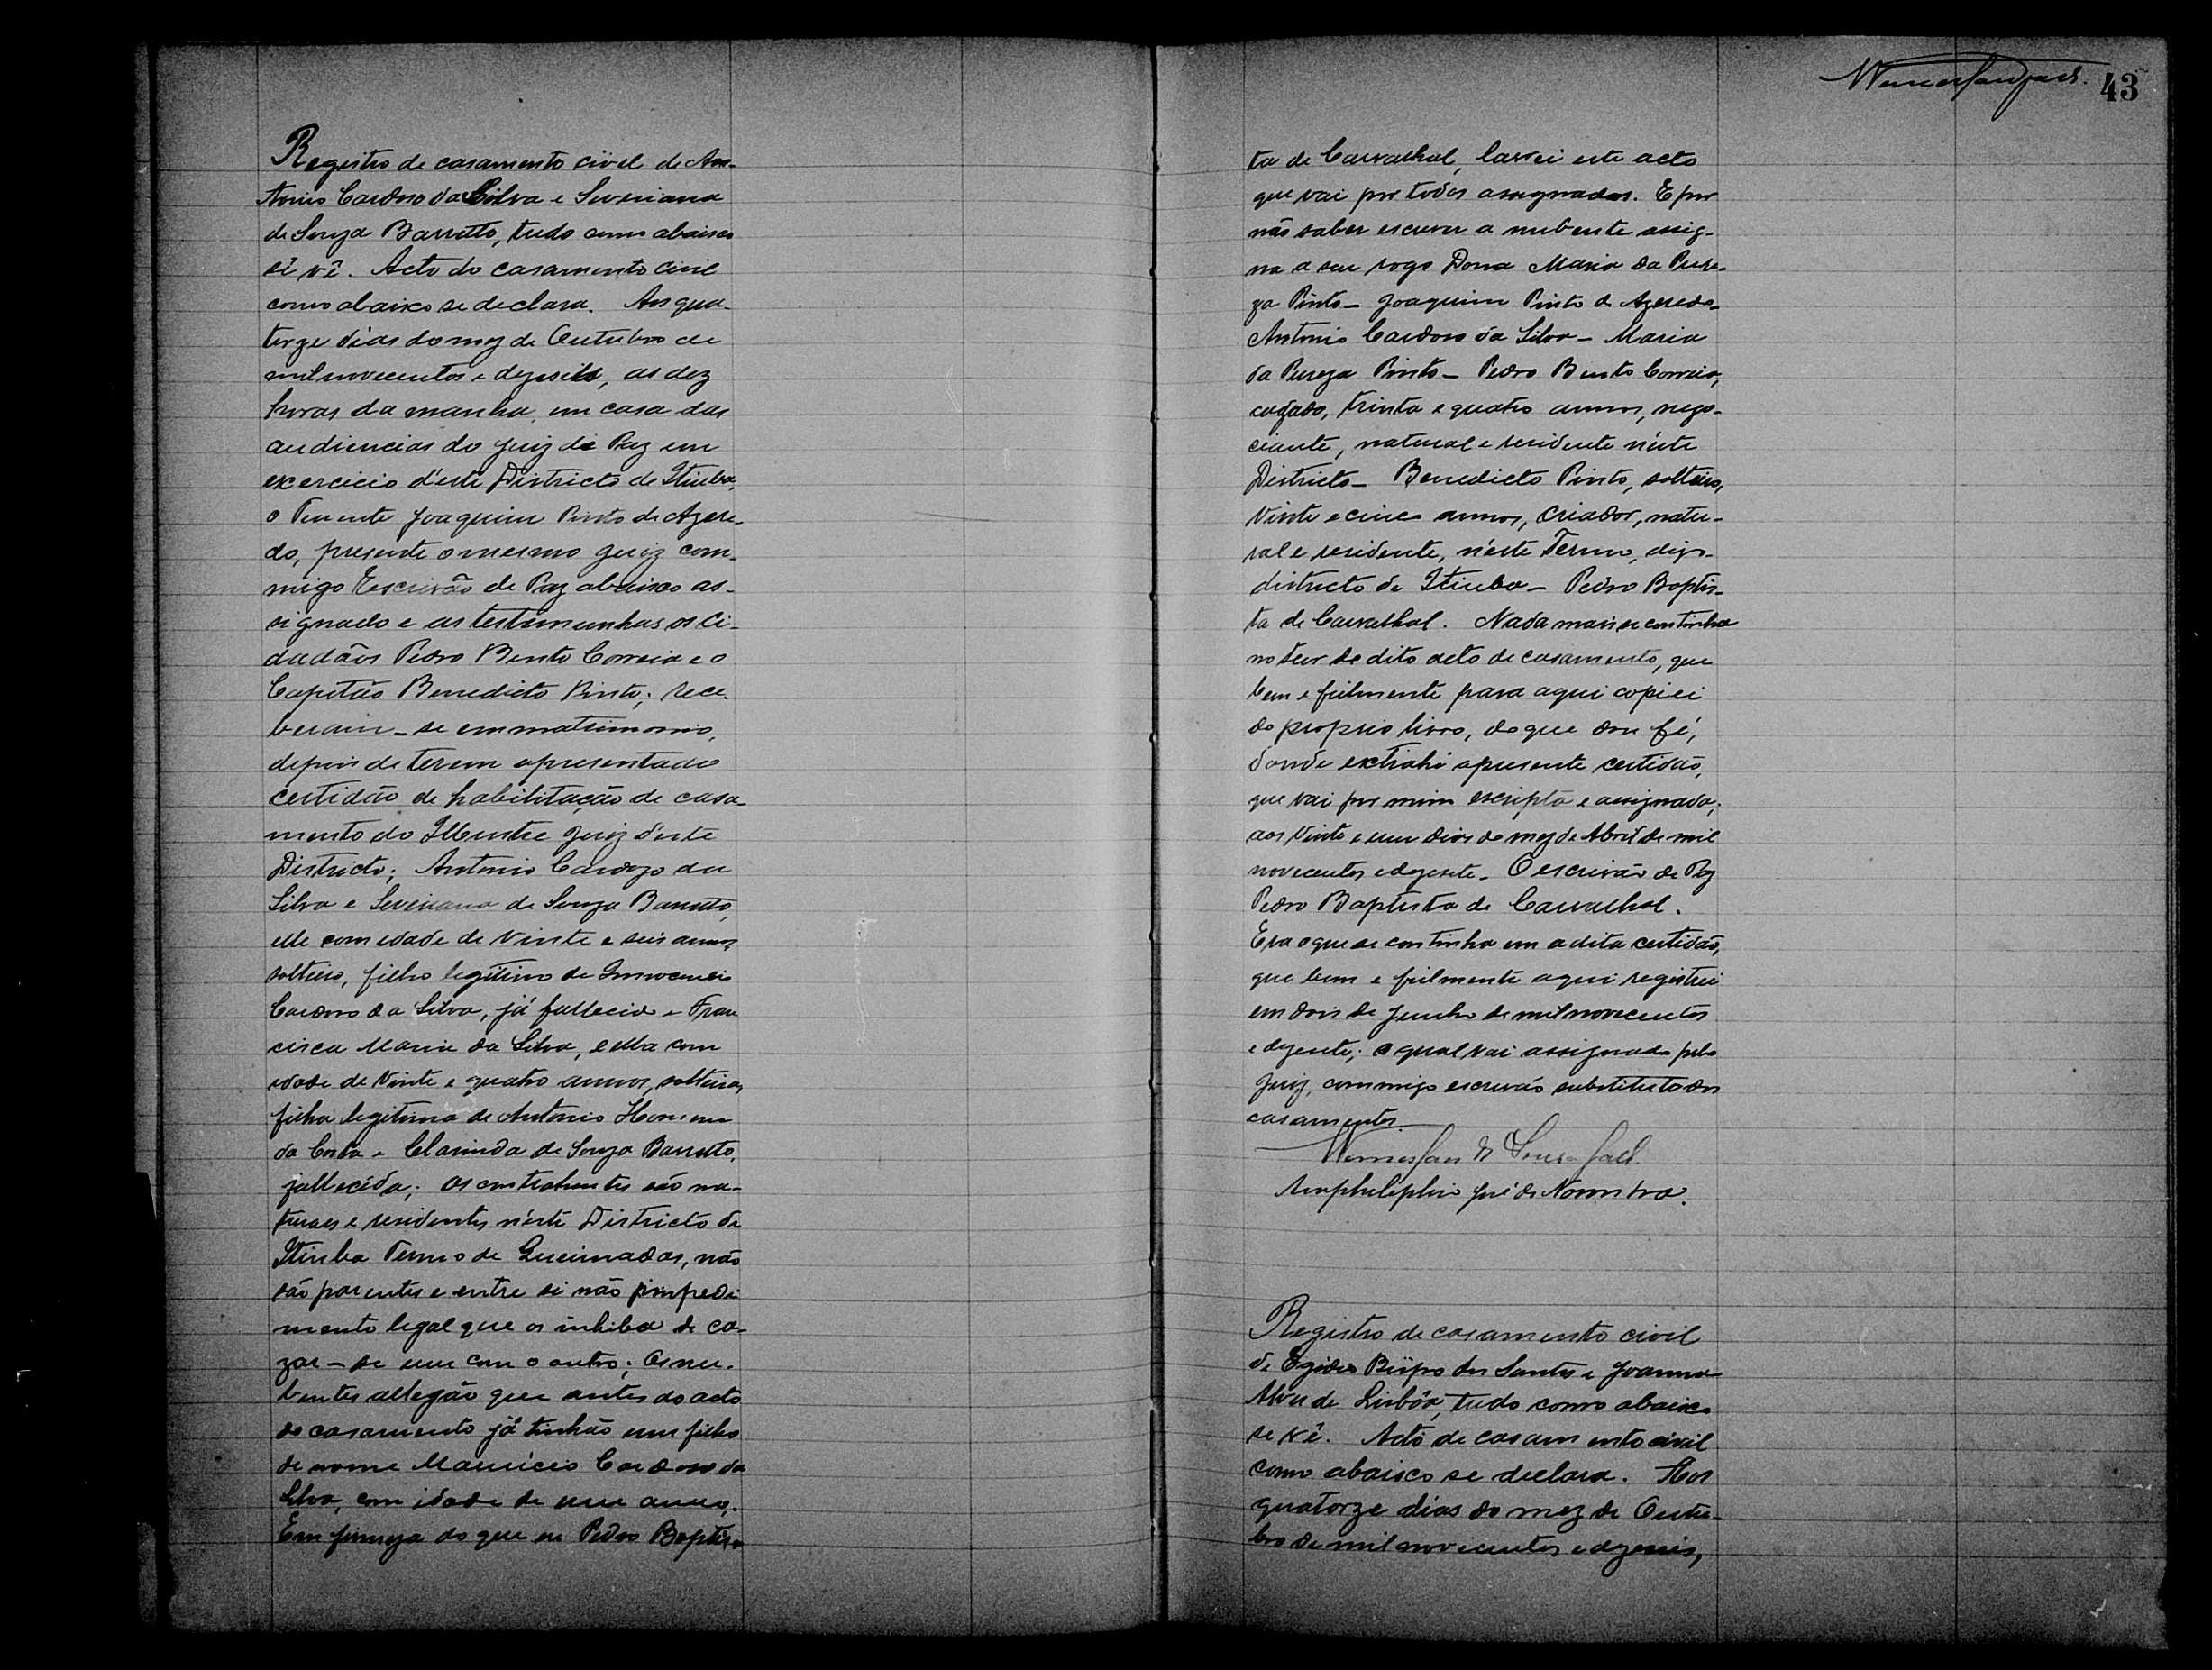 Registro de casamento civil de An-
tonio Cardoso da Silva e Severiana
de Souza Barretto, tudo como abaixo
sê vê. Acto do casamento civil
como abaixo se declara. Aos qua-
torze dias do mez de Outubro de
mil novecentos e dezeseis, as dez
horas da manha, em casa das
audiencias do Juiz de Paz em
exercicio d'este Districto de Itiuba,
o Tenente Joaquim Pinto de Azere-
do, presente o mesmo Juiz com-
migo Escrivão de Paz abaixo as-
signado e as testemunhas os Ci-
dadãos Pedro Bento Correia e o
Capitão Benedicto Pinto; rece-
beram-se em matrimonio,
depois de terem apresentado
certidão de habilitação de casa-
mento do Illustre Juiz d'este
Districto; Antonio Cardozo da
Silva e Severiana de Souza Barretto,
elle com edade de vinte e seis annos,
solteiro, filho legitimo de Innocencio
Cardoso da Silva, já fallecido e Fran
cisca Maria da Silva, e ella com
edade de vinte e quatro annos, solteira,
filha legitima de Antonio Homem
da Costa e Clarinda de Souza Barretto,
fallecida; os contrahentes são na-
turaes e residentes n'este Districto de
Itiuba Termo de Queimadas, não
são parentes e entre si não impedi
mento legal que os inhiba de ca-
zar-se um com o outro; Os nu-
bentes allegão que antes do acto
do casamento já tinhão um filho
de nome Mauricio Cardoso da
Silva, com idade de um anno.
Em firmeza do que eu Pedro Baptis-
43
ta de Carvalhal, lavrei este acto
que vai por todos assignados. E por
não saber escrever a nubente assig-
na a seu rogo Dona Maria da Pure-
za Pinto - Joaquim Pinto de Azeredo -
Antonio Cardoso da Silva - Maria
da Pureza Pinto - Pedro Bento Correia,
cazado, trinta e quatro annos, nego-
ciante, natural e residente n'este
Districto - Benedicto Pinto, solteiro,
vinte e cinco annos, criador, natu-
ral e residente, n'este Termo, digo -
districto de Itiuba - Pedro Baptis-
ta de Carvalhal. Nada mais se continha
no teor do dito acto de casamento, que
bem e fielmente para aqui copiei
do proprio livro, do que dou fé,
donde extrahi apresente certidão,
que vai por mim escripta e assignada,
aos vinte e um dias do mez de Abril de mil
novecentos e dezesete - O escrivão de Paz
Pedro Baptista de Carvalhal.
Era o que se continha em a dita certidão,
que bem e fielmente aqui registrei
em dois de Junho de mil novecentos
e dezesete; o qual vai assignado pelo
Juiz, commigo escrivão substituto dos
casamentos.
de Souza
José de
Registro de casamento civil
de Egidio Bispo dos Santos e Joanna
Alves de Lisbôa, tudo como abaixo
se vê. Acto de casamento civil
como abaixo se declara. Aos
quatorze dias do mez de Outu-
bro de mil novecentos e dezeseis,